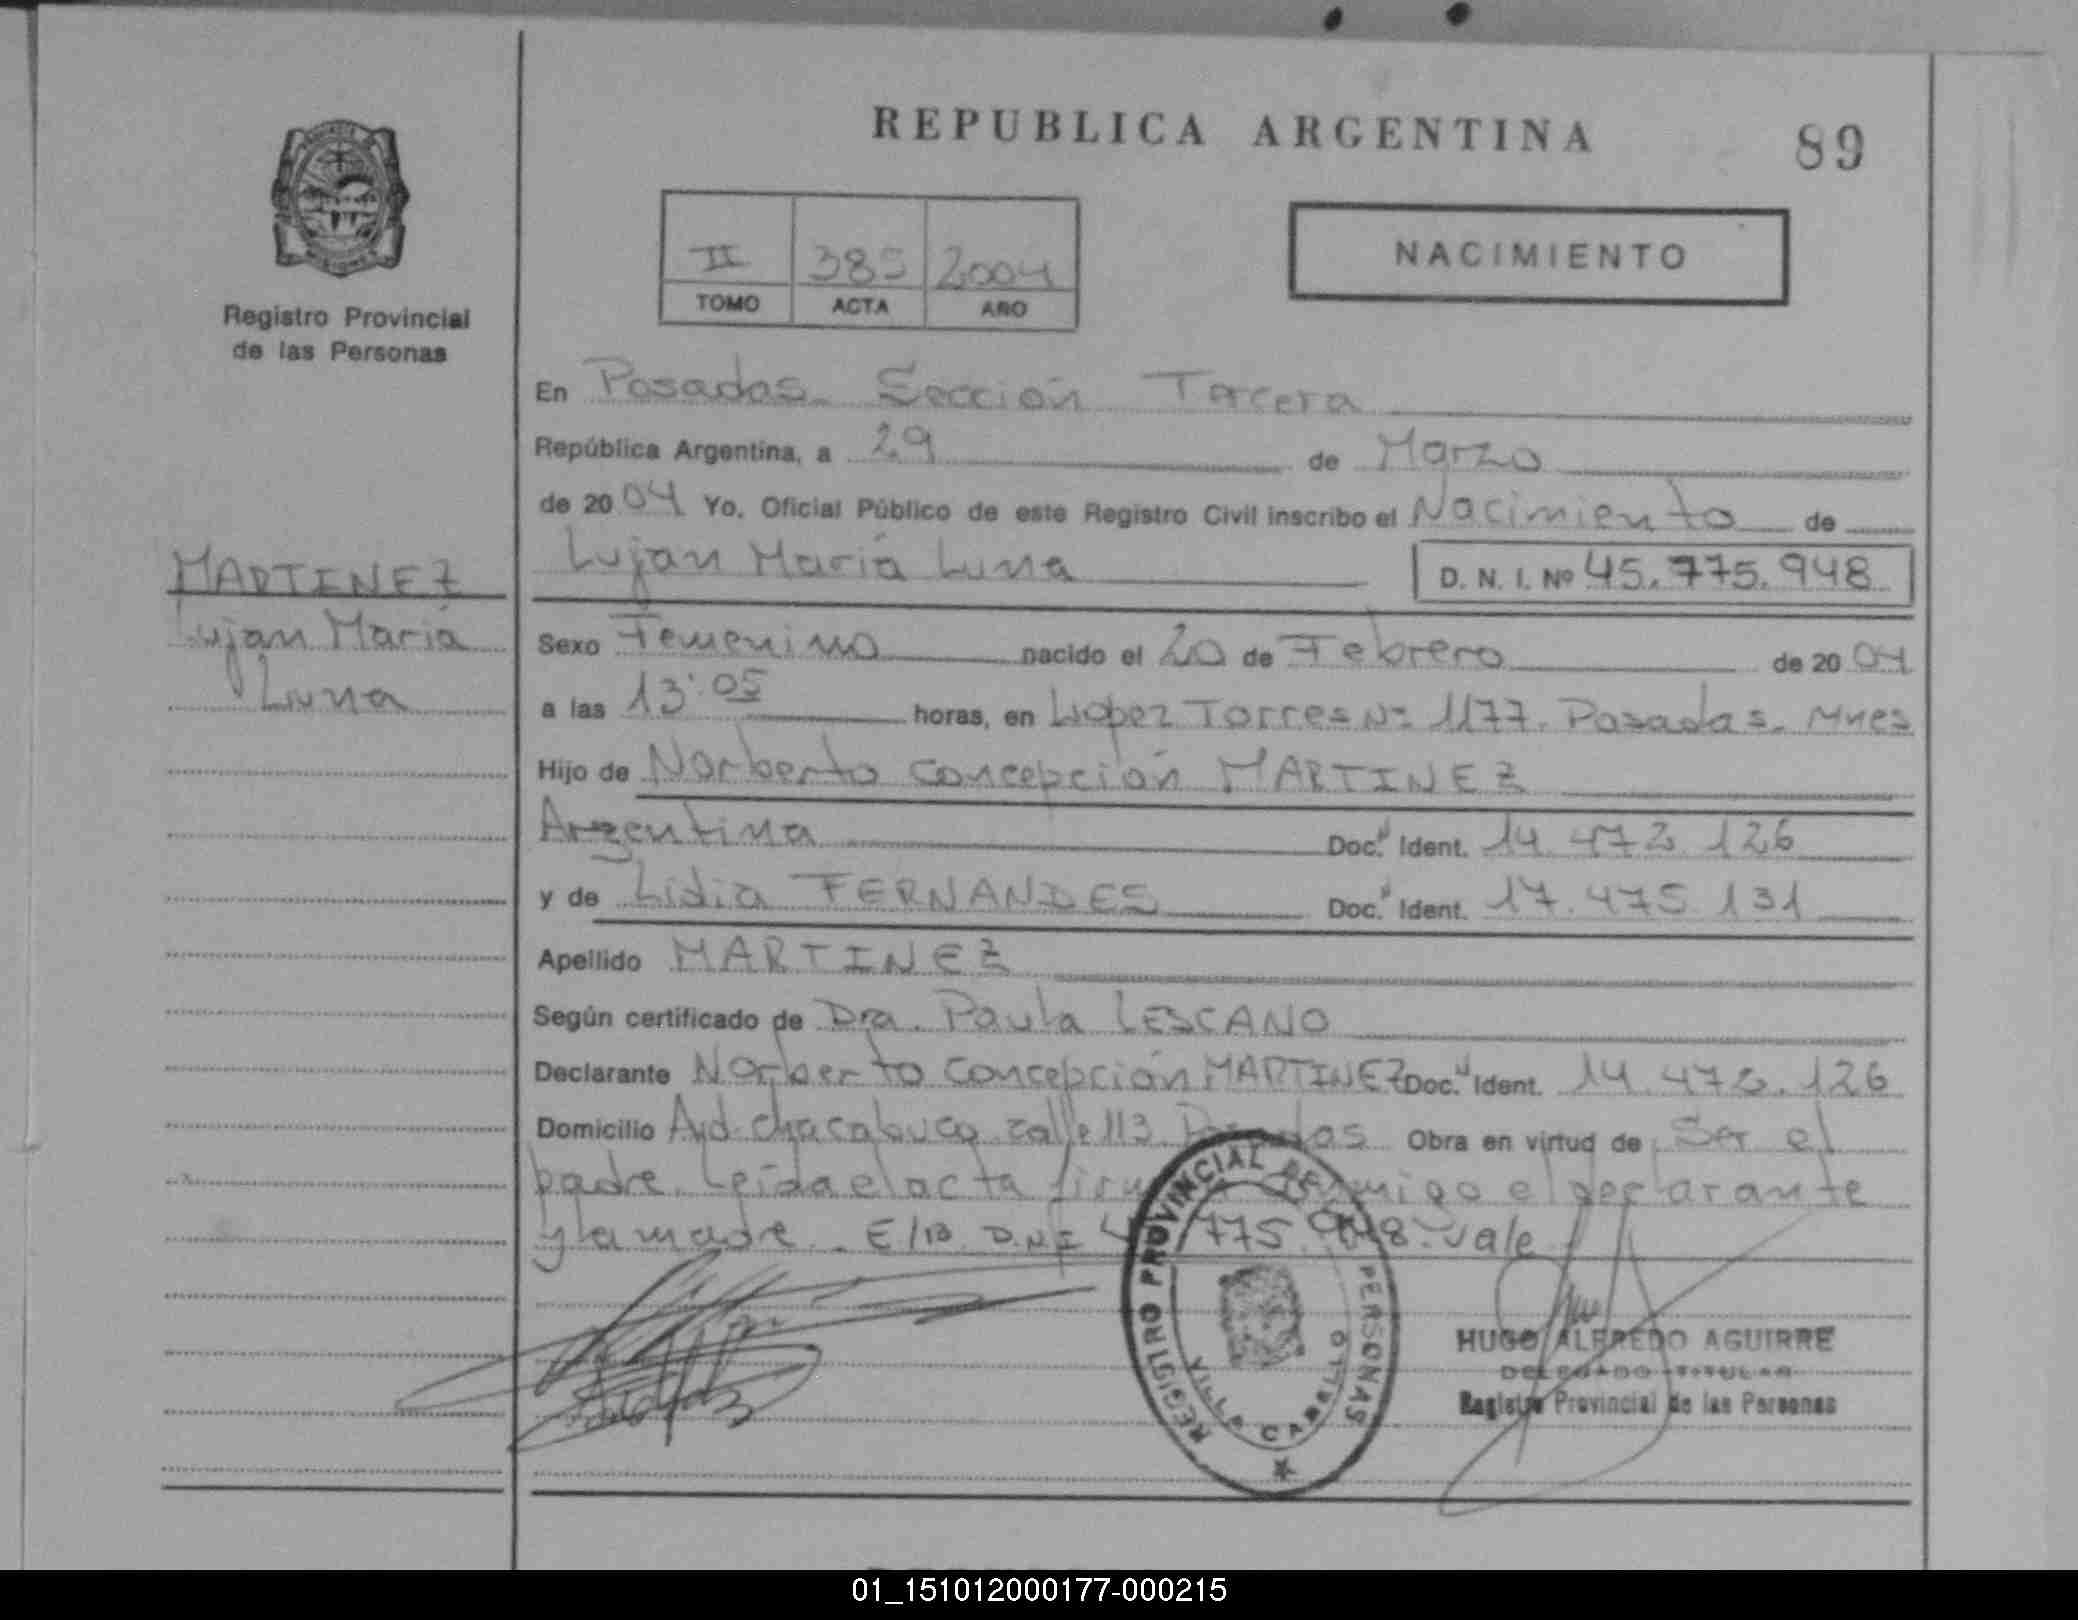 REPUBLICA ARGENTINA
89
II 385 2004
TOMO ACTA AÑO
NACIMIENTO
Registro Provincial
de las Personas
En Posadas. Sección Tercera
República Argentina, a 29 de Marzo
de 2004 Yo. Oficial Público de este Registro Civil inscribo el Nacimiento de
Lujan María Luna D. N. I. Nº 45.775.948
MARTINEZ
Lujan María
Luna
Sexo Femenino nacido el 20 de Febrero de 2004
a las 13:05 horas, en López Torres Nº 1177. Posadas. Mnes
Hijo de Norberto Concepción MARTINEZ
Argentina Doc. Ident. 14.472.126
y de Lidia FERNANDES Doc. Ident. 17.475.131
Apellido MARTINEZ
Según certificado de Dra. Paula LESCANO
Declarante Norberto Concepción MARTINEZ Doc. Ident. 14.472.126
Domicilio Avd. Chacabuco calle 113 Posadas Obra en virtud de Ser el
padre. Leída el acta conmigo el declarante
y la madre. E/B D.N.I 775.948. vale
REGISTRO PROVINCIAL DE PERSONAS
VILLA CABELLO
HUGO ALFREDO AGUIRRE
DELEGADO TITULAR
Registro Provincial de las Personas
01_151012000177-000215